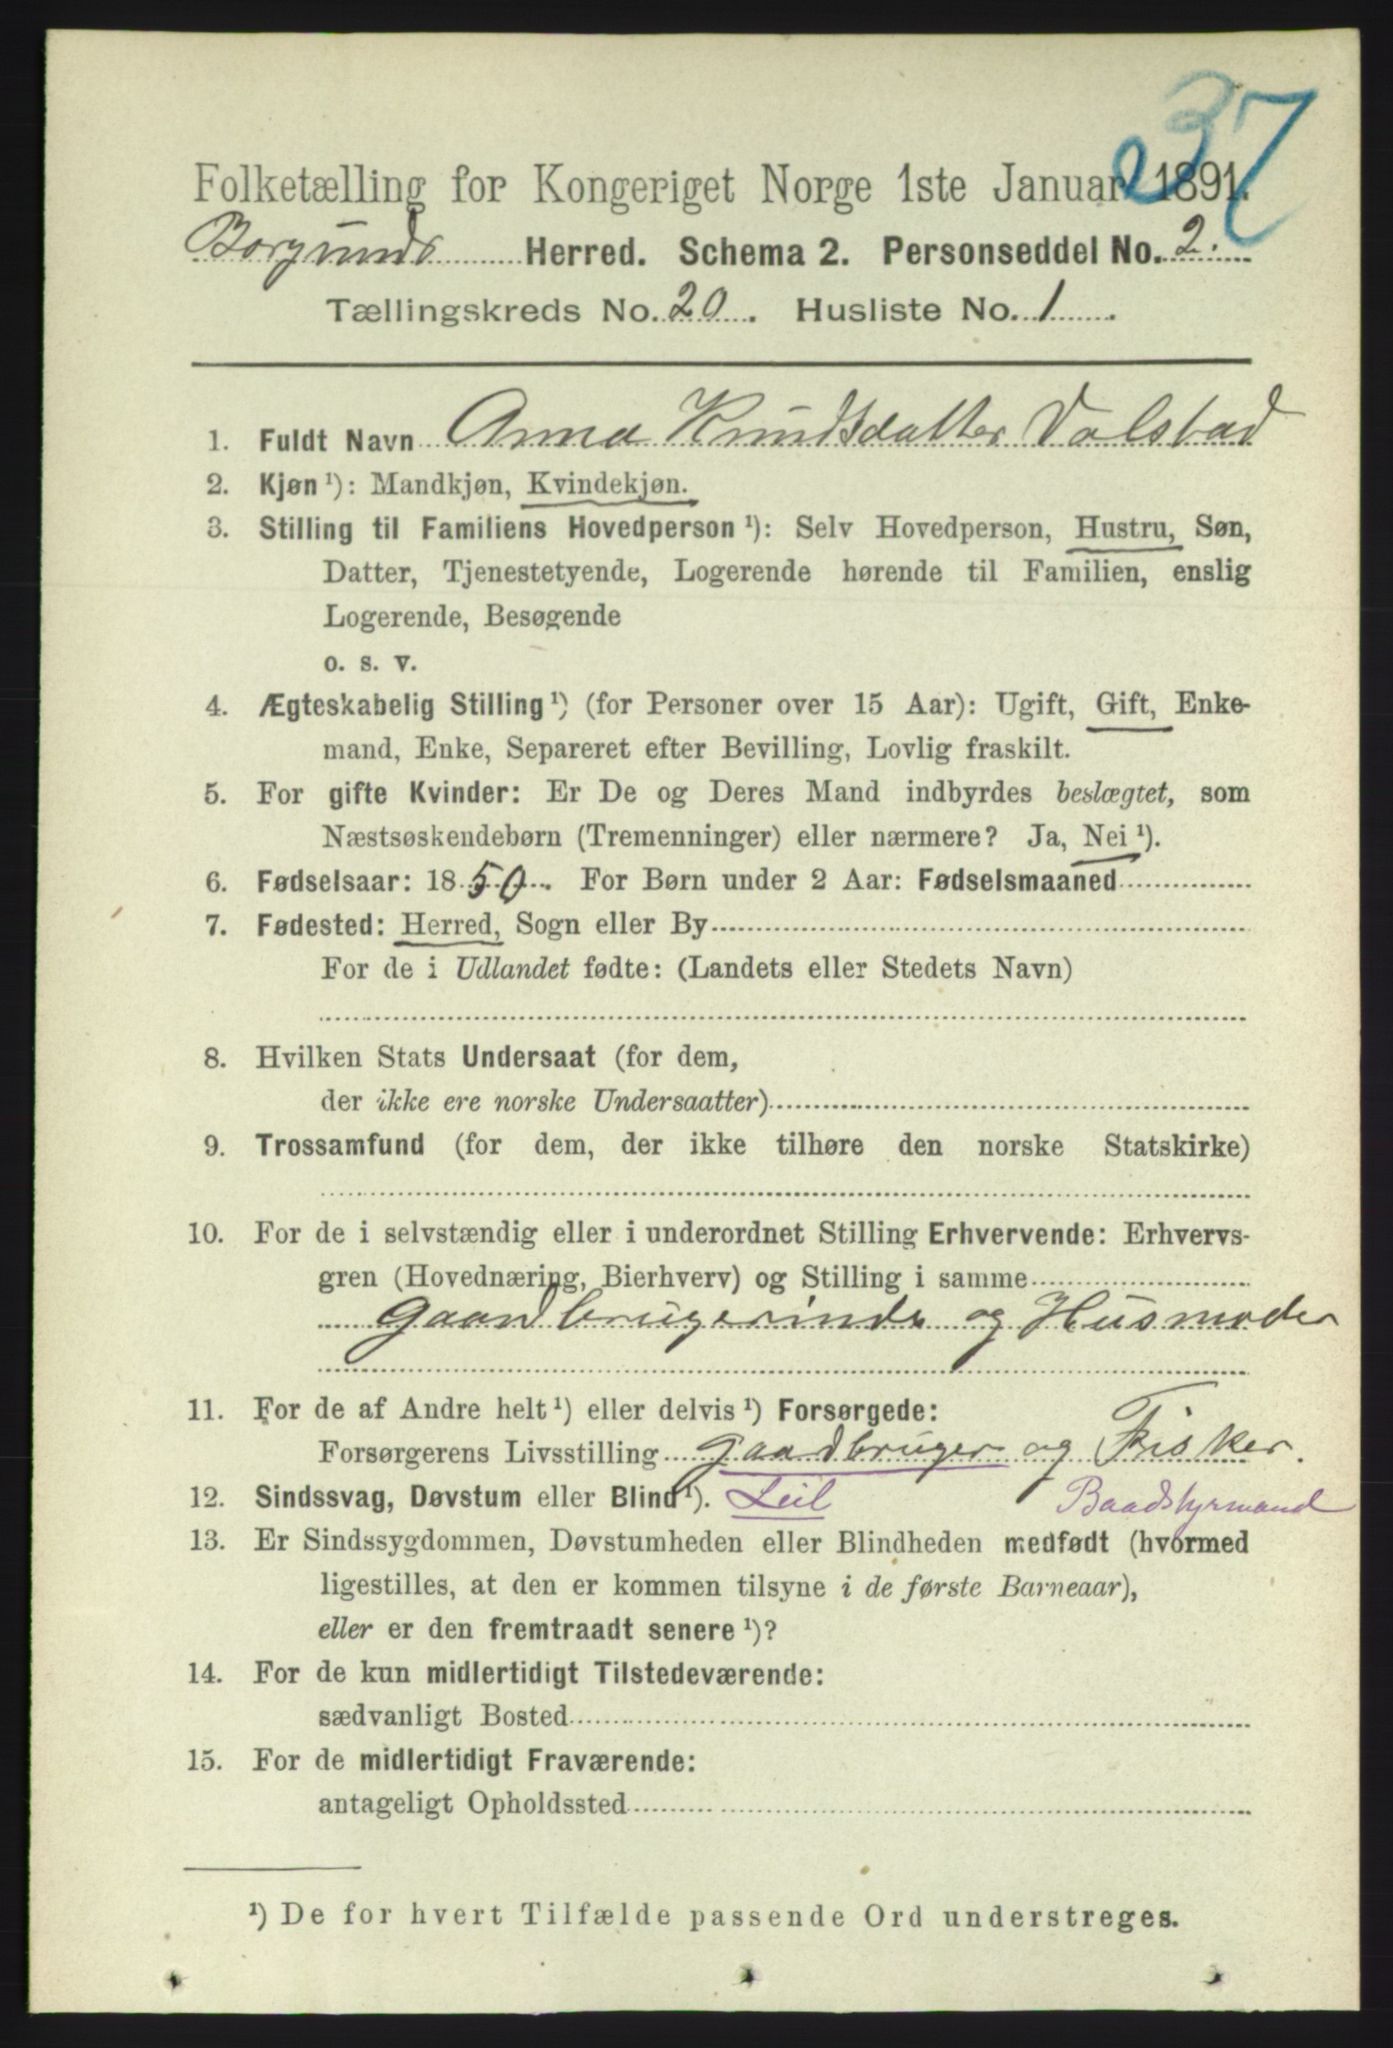 37
Folketælling for Kongeriget Norge 1ste Januar 1891.
Borgunds Herred. Schema 2. Personseddel No. 2.
Tællingskreds No. 20. Husliste No. 1.
1. Fuldt Navn Anna Knudsdatter Valstad
2. Kjøn ¹): Mandkjøn, Kvindekjøn.
3. Stilling til Familiens Hovedperson ¹): Selv Hovedperson, Hustru, Søn,
Datter, Tjenestetyende, Logerende hørende til Familien, enslig
Logerende, Besøgende
o. s. v.
4. Ægteskabelig Stilling ¹) (for Personer over 15 Aar): Ugift, Gift, Enke-
mand, Enke, Separeret efter Bevilling, Lovlig fraskilt.
5. For gifte Kvinder: Er De og Deres Mand indbyrdes beslægtet, som
Næstsøskendebørn (Tremenninger) eller nærmere? Ja, Nei ¹).
6. Fødselsaar: 1850. For Børn under 2 Aar: Fødselsmaaned
7. Fødested: Herred, Sogn eller By
For de i Udlandet fødte: (Landets eller Stedets Navn)
8. Hvilken Stats Undersaat (for dem,
der ikke ere norske Undersaatter)
9. Trossamfund (for dem, der ikke tilhøre den norske Statskirke)
10. For de i selvstændig eller i underordnet Stilling Erhvervende: Erhvervs-
gren (Hovednæring, Bierhverv) og Stilling i samme
Gaardbrugerinde og Husmoder
11. For de af Andre helt ¹) eller delvis ¹) Forsørgede:
Forsørgerens Livsstilling Gaardbruger og Fisker.
12. Sindssvag, Døvstum eller Blind ¹). Leil Baadstyrmand
13. Er Sindssygdommen, Døvstumheden eller Blindheden medfødt (hvormed
ligestilles, at den er kommen tilsyne i de første Barneaar),
eller er den fremtraadt senere ¹)?
14. For de kun midlertidigt Tilstedeværende:
sædvanligt Bosted
15. For de midlertidigt Fraværende:
antageligt Opholdssted
¹) De for hvert Tilfælde passende Ord understreges.